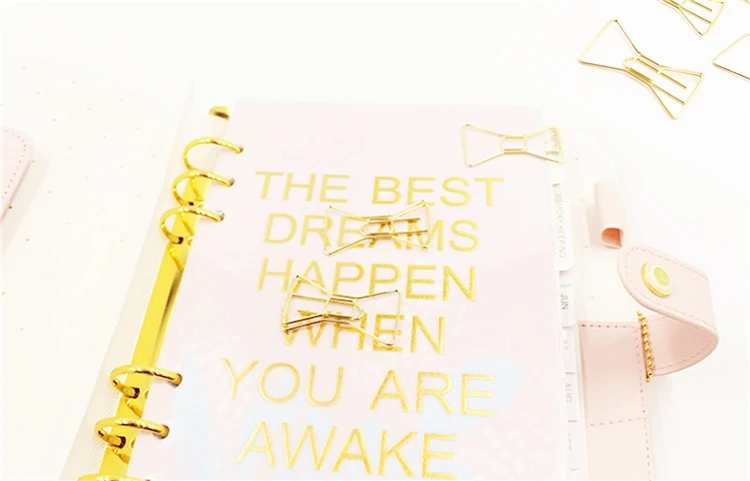 THE BEST
DREAMS
HAPPEN
WHEN
YOU ARE
AWAKE
JUN